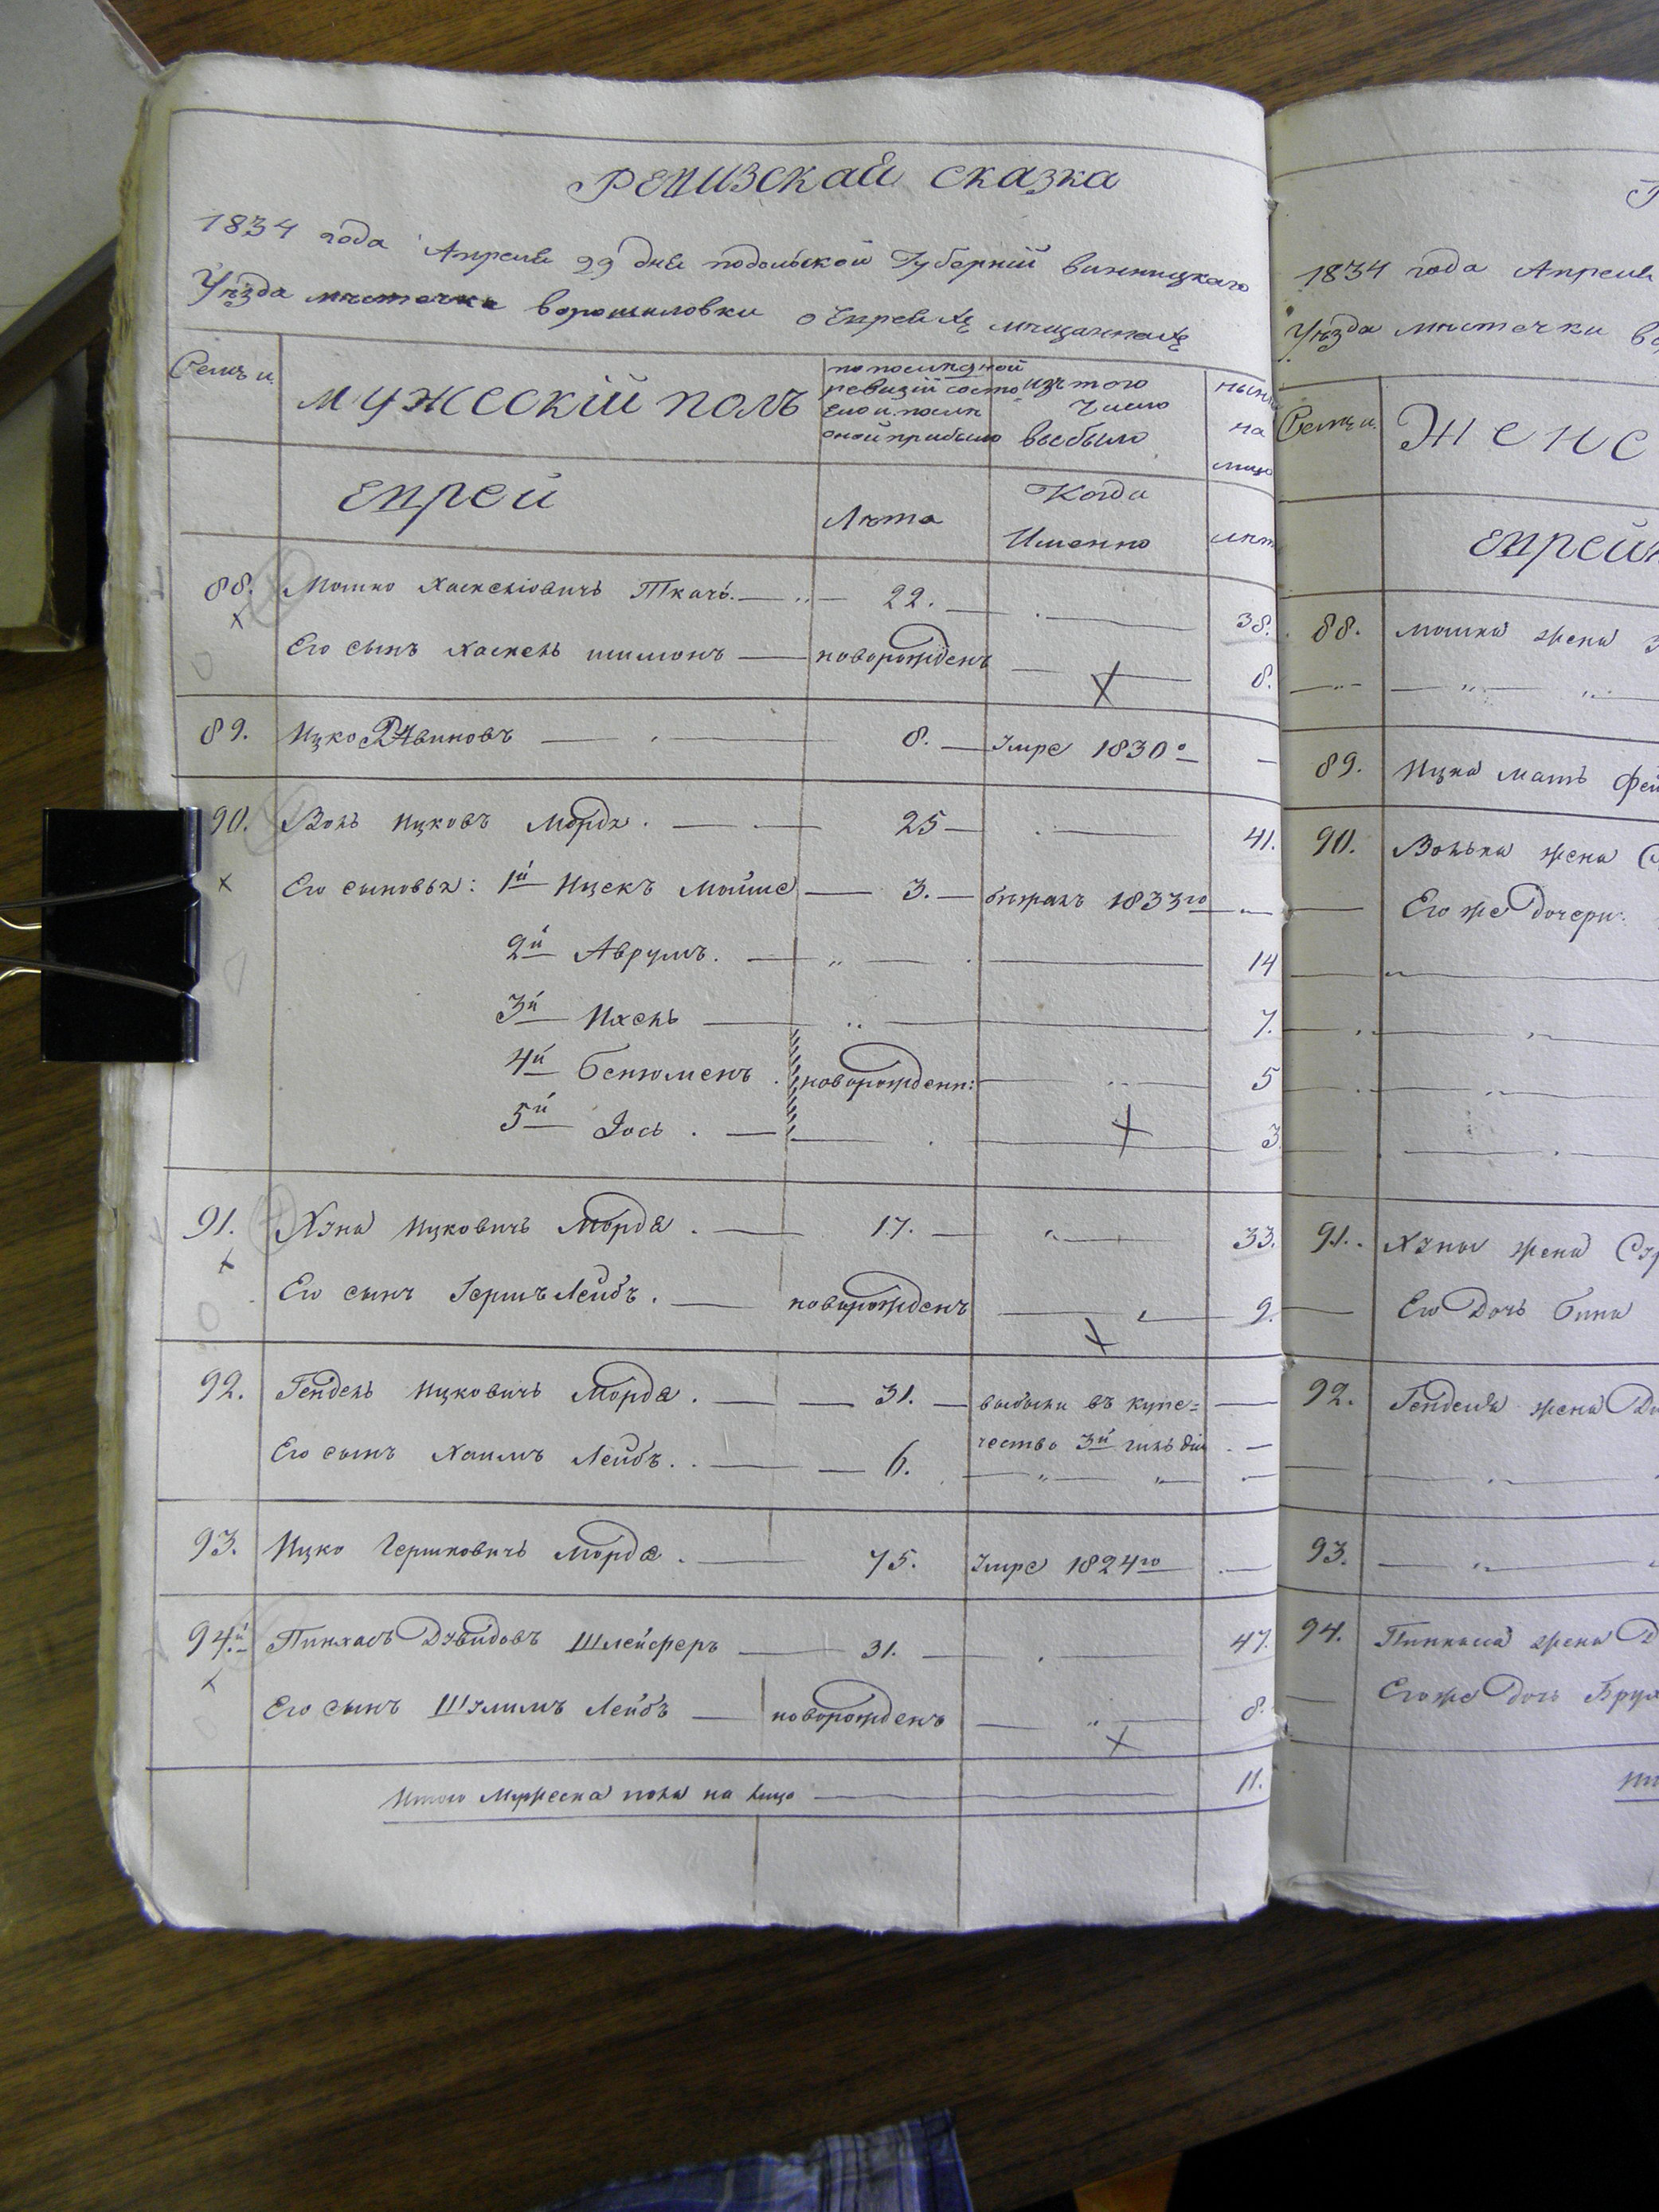 РЕВИЗСКАЯ СКАЗКА
1834 года Апреля 29 дня подольской Губерніи винницкаго
Уѣзда мѣстечка ворошиловки о Евреяхъ мещанахъ
Семьи. МУЖЕСКІЙ ПОЛЪ по последней ревизіи состояло и посли оной прибыло изъ того числа выбыло нынѣ на лицо
ЕВРЕИ Лѣта Когда Именно лѣт
88. Мошко Хаскеліовичъ Ткачъ. 22. 38.
Его сынъ Хаскель шимонъ новорожденъ 8.
89. Ицко 8. Умре 1830о
90. Воль Ицковъ Морда. 25 41.
Его сыновья: 1й Ицекъ Мойше 3. бѣжалъ 1833го
2й Аврумъ. 14
3й Ихель 7.
4й Бенюменъ новорожденн: 5
5й Іось. 3
91. Хуна Ицковичъ Морда. 17. 33.
Его сынъ Гершъ Лейбъ. новорожденъ 9.
92. Гендель Ицковичъ Морда. 31. выбыли въ купе=
чество 3й гильдіи
Его сынъ Хаимъ Лейбъ. 6.
93. Ицко Гершковичъ Морда. 75. Умре 1824го
94.й Пинхасъ Дувидовъ Шлейферъ 31. 47.
Его сынъ Шулимъ Лейбъ новорожденъ 8.
Итого Мужеска пола на лицо 11.
1834 года Апреля
Уѣзда мѣстечка
Семьи. ЖЕНС
ЕВРЕЙ
88. Мошка жена
89. Ицка мать
90. Волька жена
Его же дочери:
91. Хуны жена
Его дочь Бина
92. Генделя жена
93.
94. Пинхаса жена
Его же дочь